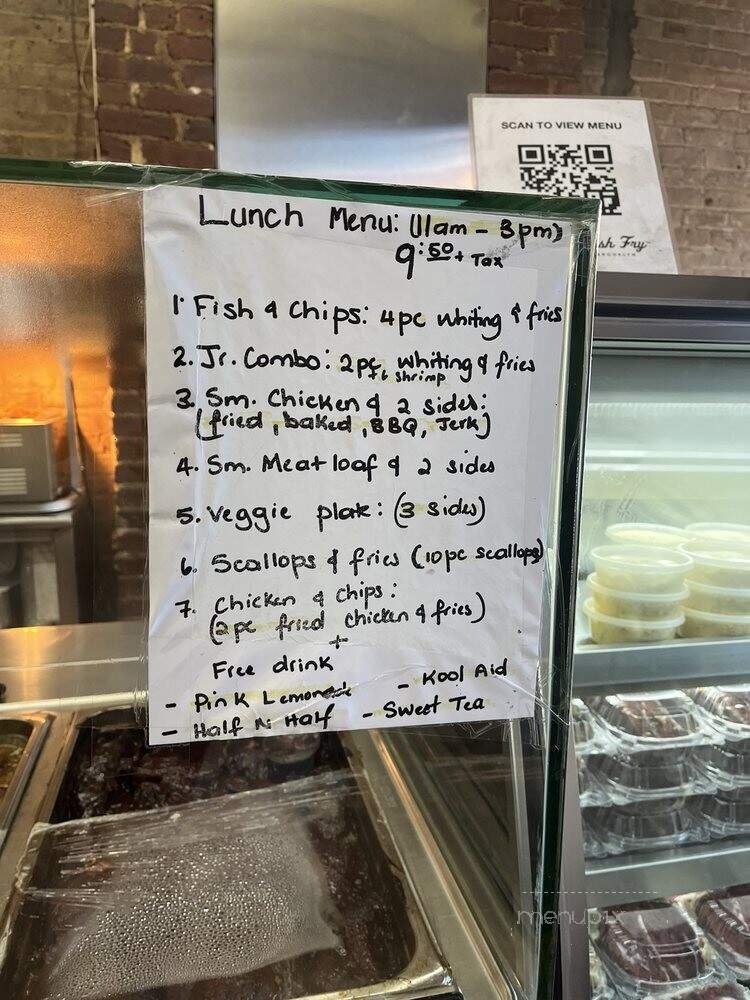 SCAN TO VIEW MENU
sh Fry
BROOKLYN
Lunch Menu: (11am - 3pm)
9:50 + Tax
1. Fish & Chips: 4pc whiting & fries
2. Jr. Combo: 2pc whiting & fries
+ 6 shrimp
3. Sm. Chicken & 2 sides:
(fried, baked, BBQ, Jerk)
4. Sm. Meatloaf & 2 sides
5. Veggie plate: (3 sides)
6. Scallops & fries (10pc scallops)
7. Chicken & Chips:
(2pc fried chicken & fries)
+
Free drink
- Pink Lemonade - Kool Aid
- Half N Half - Sweet Tea
menupix